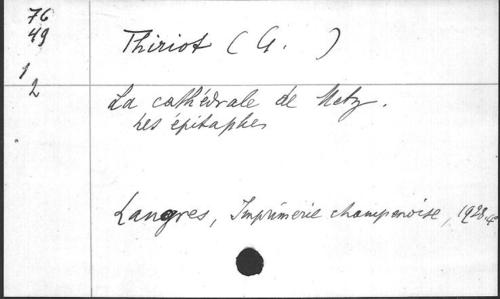 76
49
Thiriot (G. )
1
2
La cathédrale de Metz.
Les épitaphes
Langres, Imprimerie champenoise, 1928, 4°